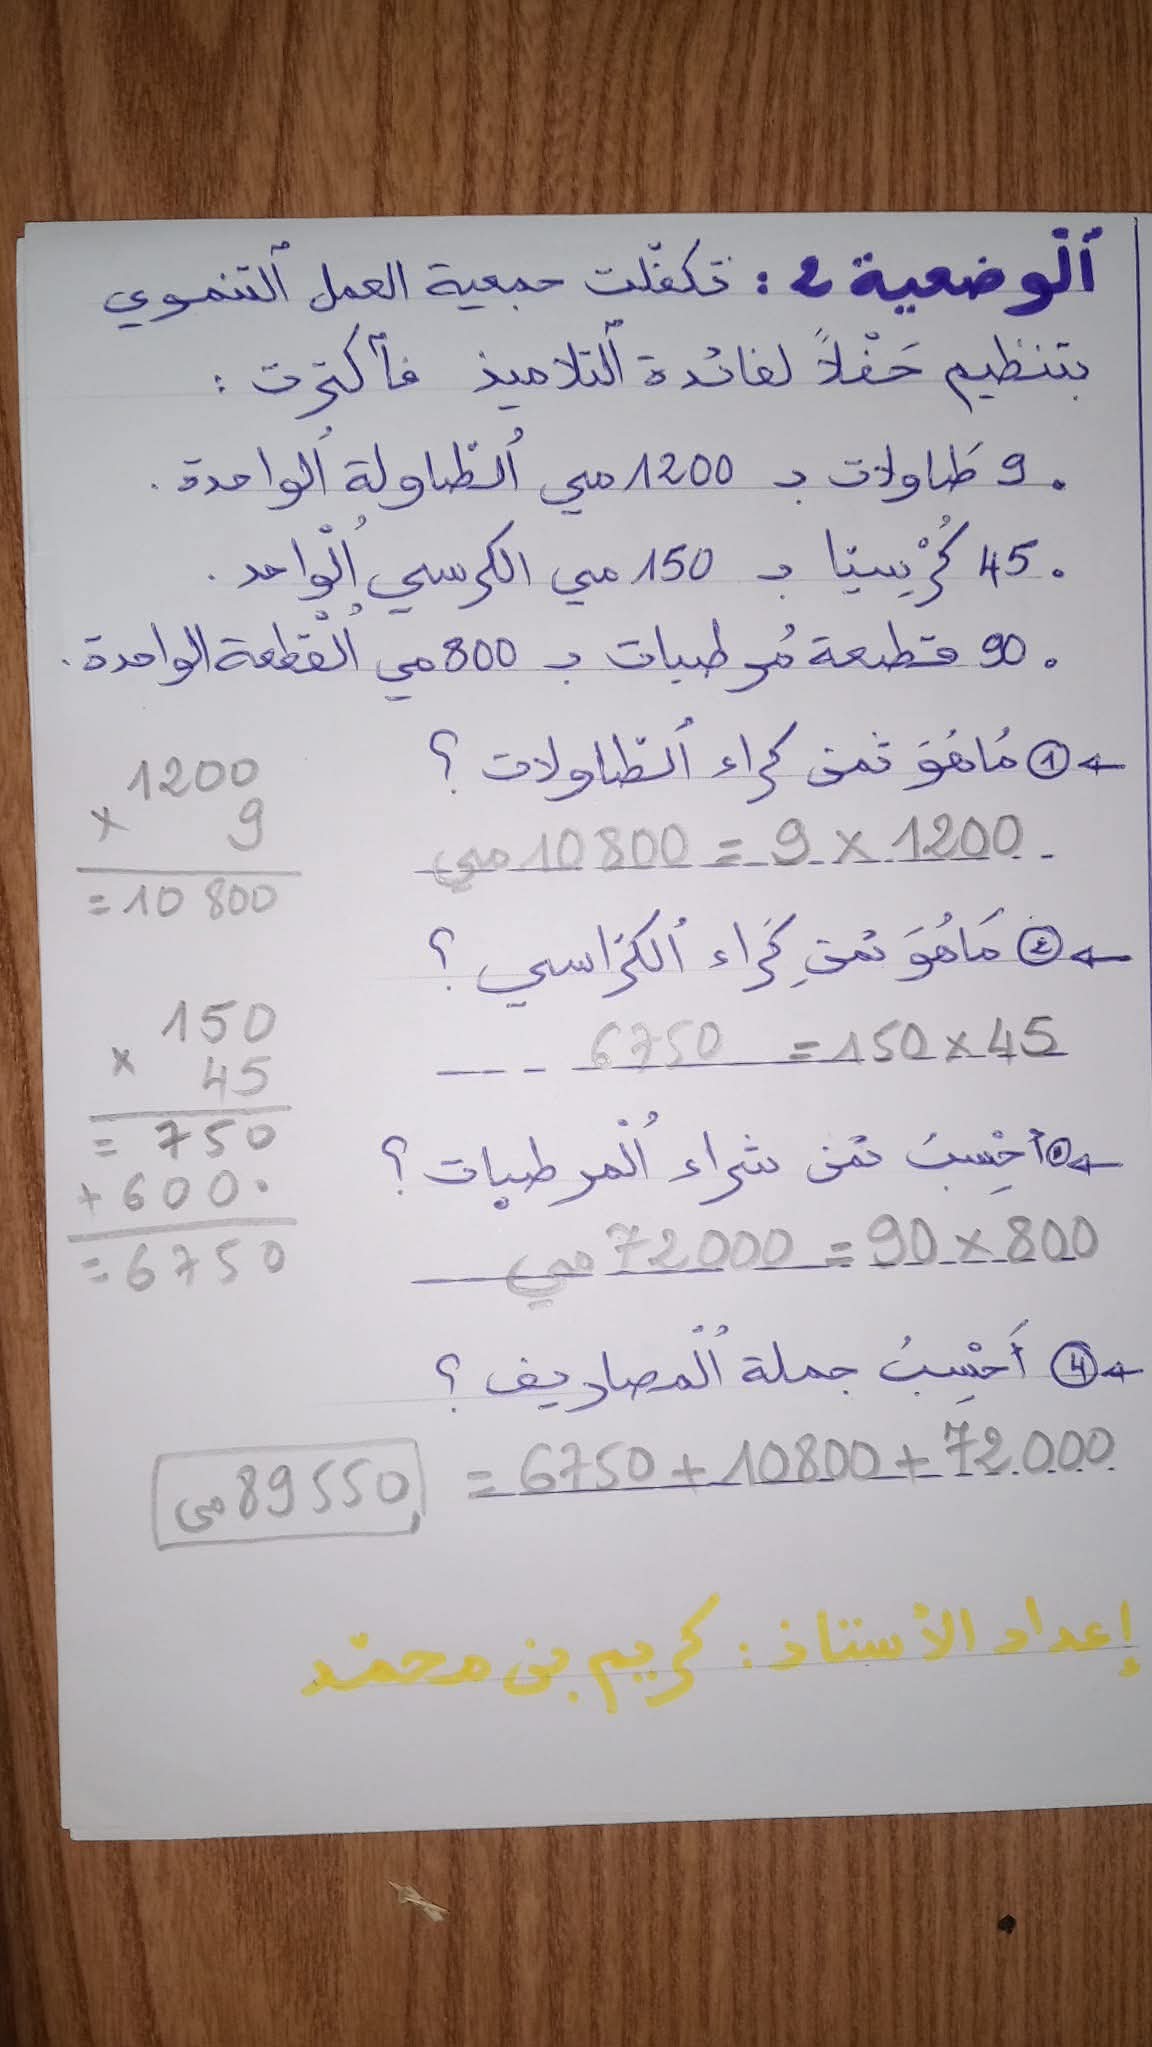 ٱلوضعية 2 : تكفّلت جمعية العمل ٱلتنموي
بتنظيم حَفْلاً لفائدة ٱلتلاميذ فٱكترت :
. 9 طَاولات بـ 1200 مي ٱلطّاولة ٱلواحدة .
. 45 كُرْسِيّا بـ 150 مي الكرسي ٱلْواحد .
. 90 قطعة مُرطبات بـ 800 مي ٱلْقطعة الواحدة .
← ① مَاهُوَ ثمن كراء ٱلطّاولات ؟
1200 × 9 = 10 800 مي
1200
× 9
= 10 800
← ② مَاهُوَ ثمن كِرَاء ٱلكرَاسي ؟
45 × 150 = 6750
150
× 45
= 750
+ 600.
= 6750
← أحْسِبُ ثمن شراء ٱلْمرطبات ؟
800 × 90 = 72000 مي
← ④ أَحْسِبُ جملة ٱلْمصاريف ؟
72.000 + 10800 + 6750 =
89550 مي
إعداد الأستاذ : كريم بن محمّد